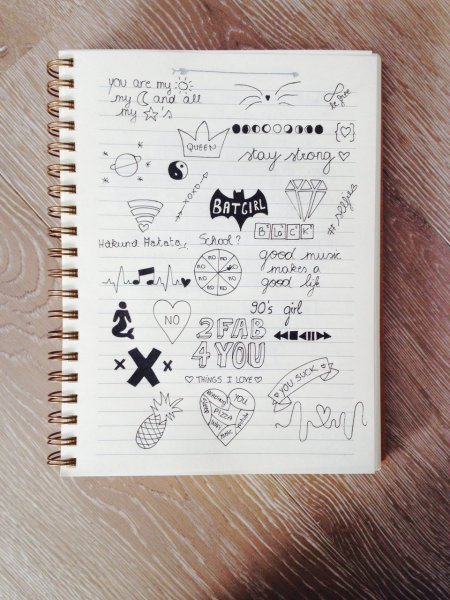 you are my
my and all
my 's
be free
QUEEN
stay strong
xoxo
BATGIRL
# selfies
B L A C K
Hakuna Matata
School?
NO NO NO NO NO NO NO
good music
makes a
good life
NO
90's girl
2 FAB
4 YOU
THINGS I LOVE
YOU SUCK
YOU
PIZZA